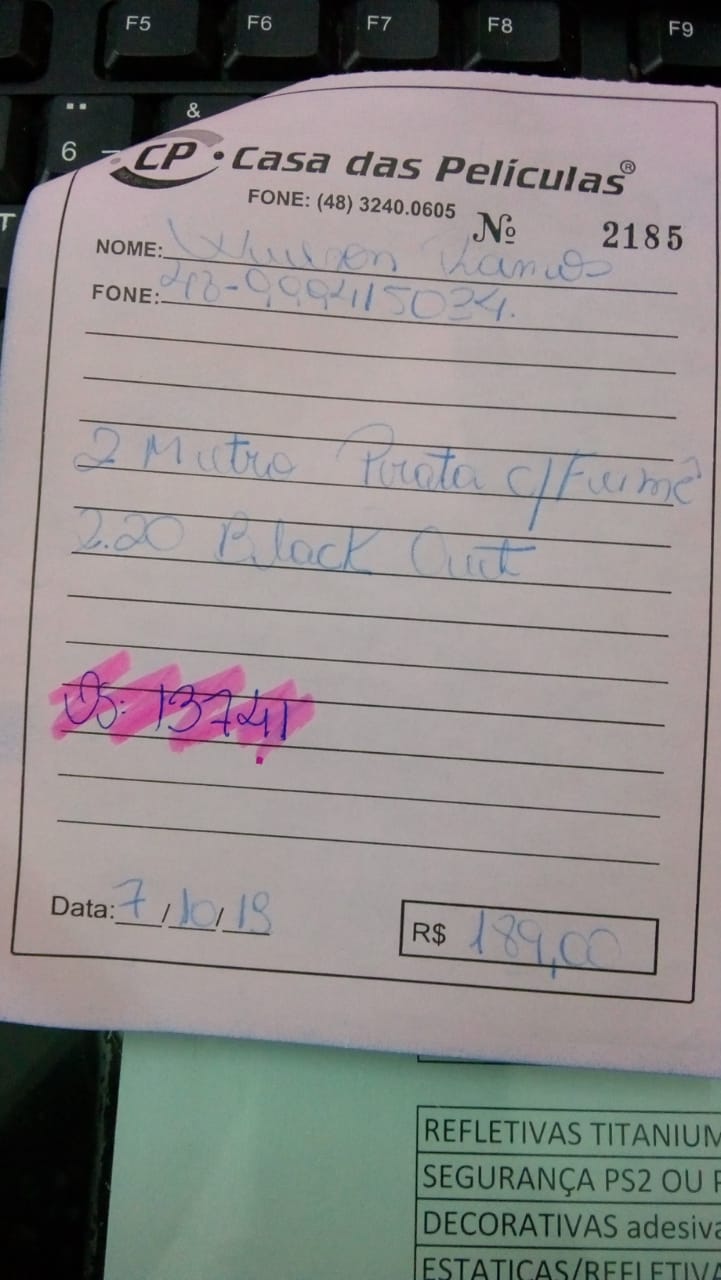 F5 F6 F7 F8 F9
&
6
CP • Casa das Películas®
FONE: (48) 3240.0605
Nº 2185
NOME: Ramos
FONE: 48-999415034.
2 Mutro Pirata c/Fumê
2.20 Black Out
OS: 13741
Data: 7/10/19
R$ 189,00
REFLETIVAS TITANIUM
SEGURANÇA PS2 OU
DECORATIVAS adesiva
ESTATICAS/REFLETIVA